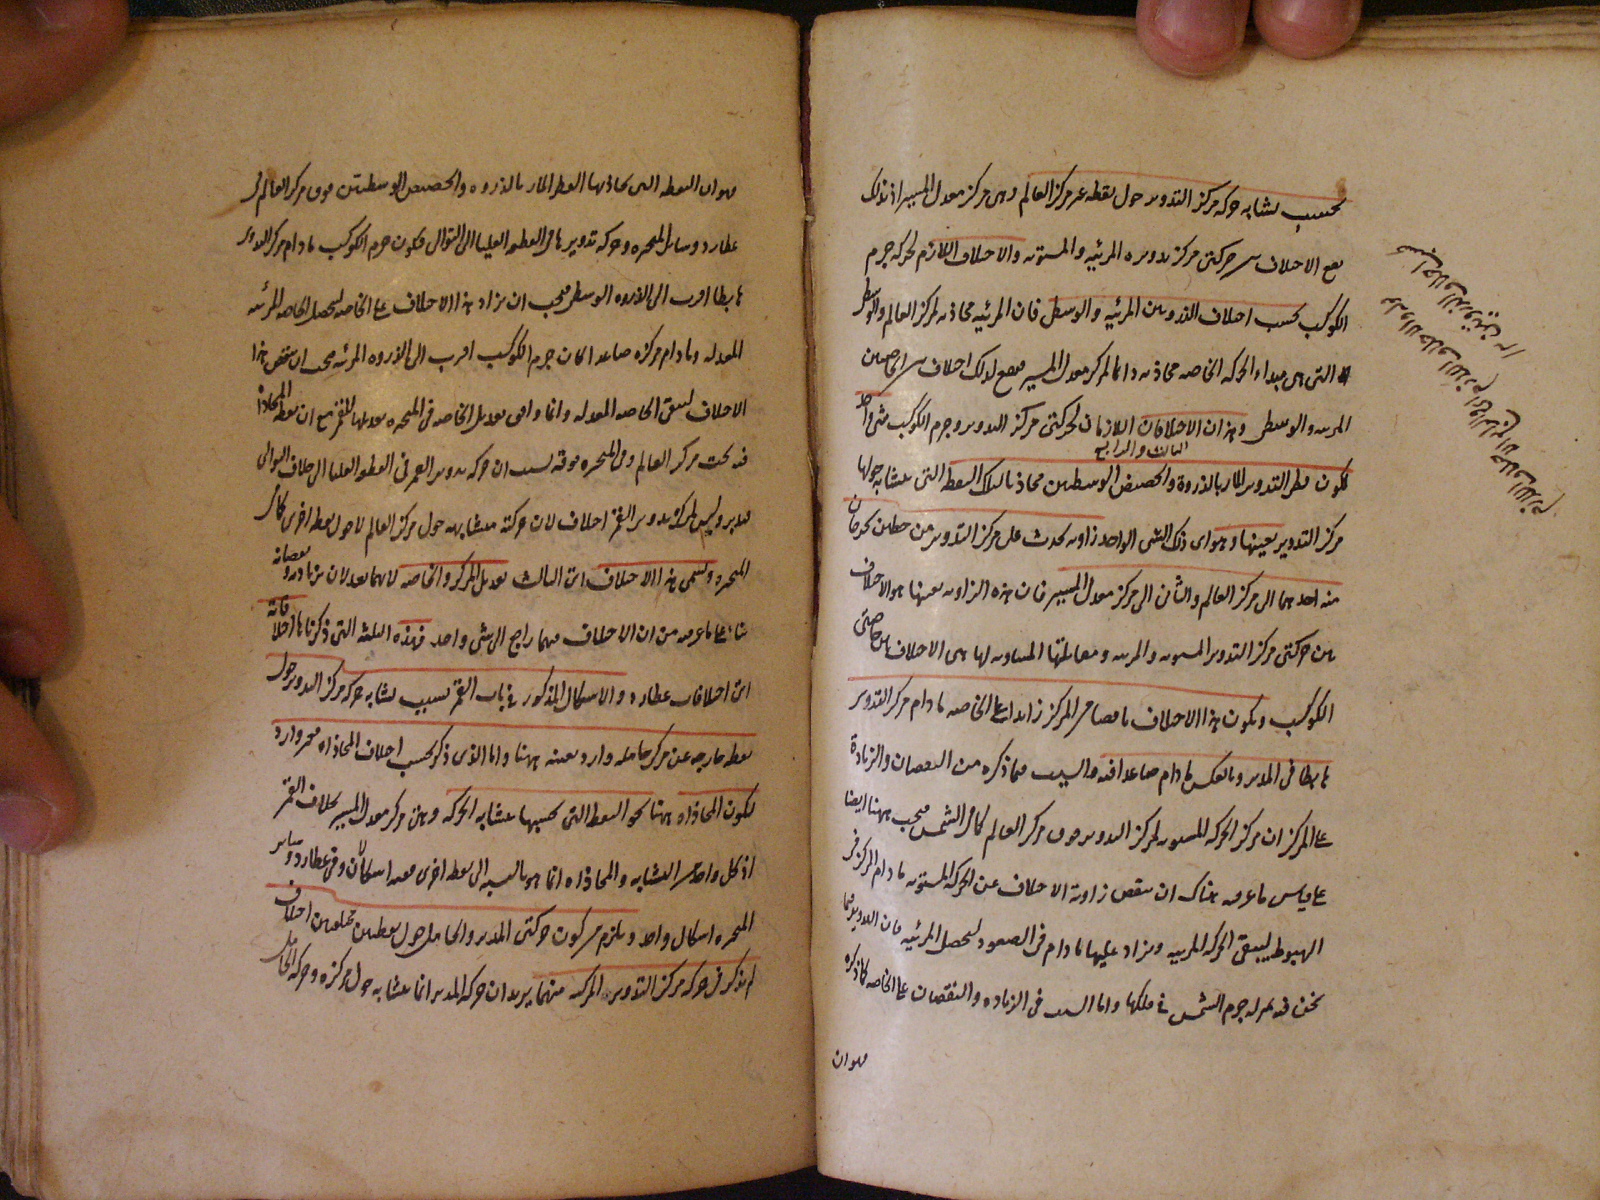 بحسب تشابه حركة مركز التدوير حول نقطة غير مركز العالم وهى مركز معدل المسير اذ بذلك
يقع الاختلاف بين حركتى مركز تدويره المرئية والمستوية والاختلاف اللازم لحركة جرم
الكوكب بحسب اختلاف الذروتين المرئية والوسطى فان المرئية محاذية لمركز العالم والوسطى
التى هى مبداء الحركة الخاصه محاذية دائما لمركز معدل المسير فيقع لذلك اختلاف بين الخاصتين
المرئية والوسطى وهذان الاختلافان اللازمان لحركتى مركز التدوير وجرم الكوكب شئ واحد
الثالث والرابع
لكون قطر التدوير المار بالذروة والحضيض الوسطيين محاذيا لتلك النقطة التى يتشابه حولها
مركز التدوير بعينها وهو اى ذلك الشئ الواحد زاوية تحدث على مركز التدوير من خطين يخرجان
منه احدهما الى مركز العالم والثانى الى مركز معدل المسير فان هذه الزاوية بعينها هو الاختلاف
بين حركتى مركز التدوير المستوية والمرئية ومقابلتها المساوية لها هى الاختلاف بين خاصتى
الكوكب ويكون هذا الاختلاف ناقصا من المركز زايدا على الخاصه ما دام مركز التدوير
هابطا فى المدير وبالعكس ما دام صاعدا فيه والسبب فيما ذكره من النقصان والزيادة
على المركز ان مركز الحركة المستوية لمركز التدوير فوق مركز العالم كما فى الشمس فيجب ههنا ايضا
على قياس ما عرفه هناك ان ينقص زاوية الاختلاف عن الحركة المستوية ما دام المركز فى
الهبوط ليبقى الحركة المرئية ويزاد عليها ما دام فى الصعود ليحصل المرئية فان التدوير فيما
نحن فيه بمنزلة جرم الشمس فى فلكها واما السبب فى الزياده والنقصان على الخاصه كما ذكره
فهو ان
فهو ان النقطه التى يحاذيها القطر المار بالذروه والحضيض الوسطيتين فوق مركز العالم فى
عطارد وسائر المتحيره وحركة تدويرها فى القطعه العليا الى التوالى فيكون جرم الكوكب ما دام مركز التدوير
هابطا اقرب الى الذروه الوسطى فيجب ان يزاد هذا الاختلاف على الخاصه ليحصل الخاصه المرئيه
المعدله وما دام مركزه صاعدا كان جرم الكوكب اقرب الى الذروه المرئيه فيجب ان ينقص هذا
الاختلاف ليبقى الخاصه المعدله وانما وافق تعديل الخاصه فى المتحيره تعديلها للقمر مع ان نقطه المحاذاة
فيه تحت مركز العالم وفى المتحيره فوقه بسبب ان حركة تدوير القمر فى القطعه العليا الى خلاف التوالى
فتدبر وليس لمركز تدوير القمر اختلاف لان حركته متشابهه حول مركز العالم لا حول نقطه اخرى كما فى
المتحيره ويسمى هذا الاختلاف اى الثالث تعديل المركز والخاصه لانهما يعدلان بزيادته ونقصانه
بناء على ما عرفه من ان الاختلاف فيهما راجع الى شئ واحد فهذه الثلثه التى ذكرناها اختلافاته
اى اختلافات عطارد والاشكال المذكور فى باب القمر بسبب تشابه حركة مركز التدوير حول
نقطه خارجه عن مركز حامله وارد بعينه ههنا واما الذى ذكر بحسب اختلاف المحاذاه فغير وارد
لكون المحاذاه ههنا نحو النقطه التى بحسبها يتشابه الحركه وهى مركز معدل المسير بخلاف القمر
اذ كل واحد من التشابه والمحاذاه انما هو بالنسبه الى نقطه اخرى ففيه اشكالان وفى عطارد وسائر
المتحيره اشكال واحد ويلزم من كون حركتى المدير والحامل حول نقطتين مختلفتين اختلاف
لم يذكر فى حركه مركز التدوير المركبه منهما يريد ان حركه المدير انما يتشابه حول مركزه وحركه الحامل